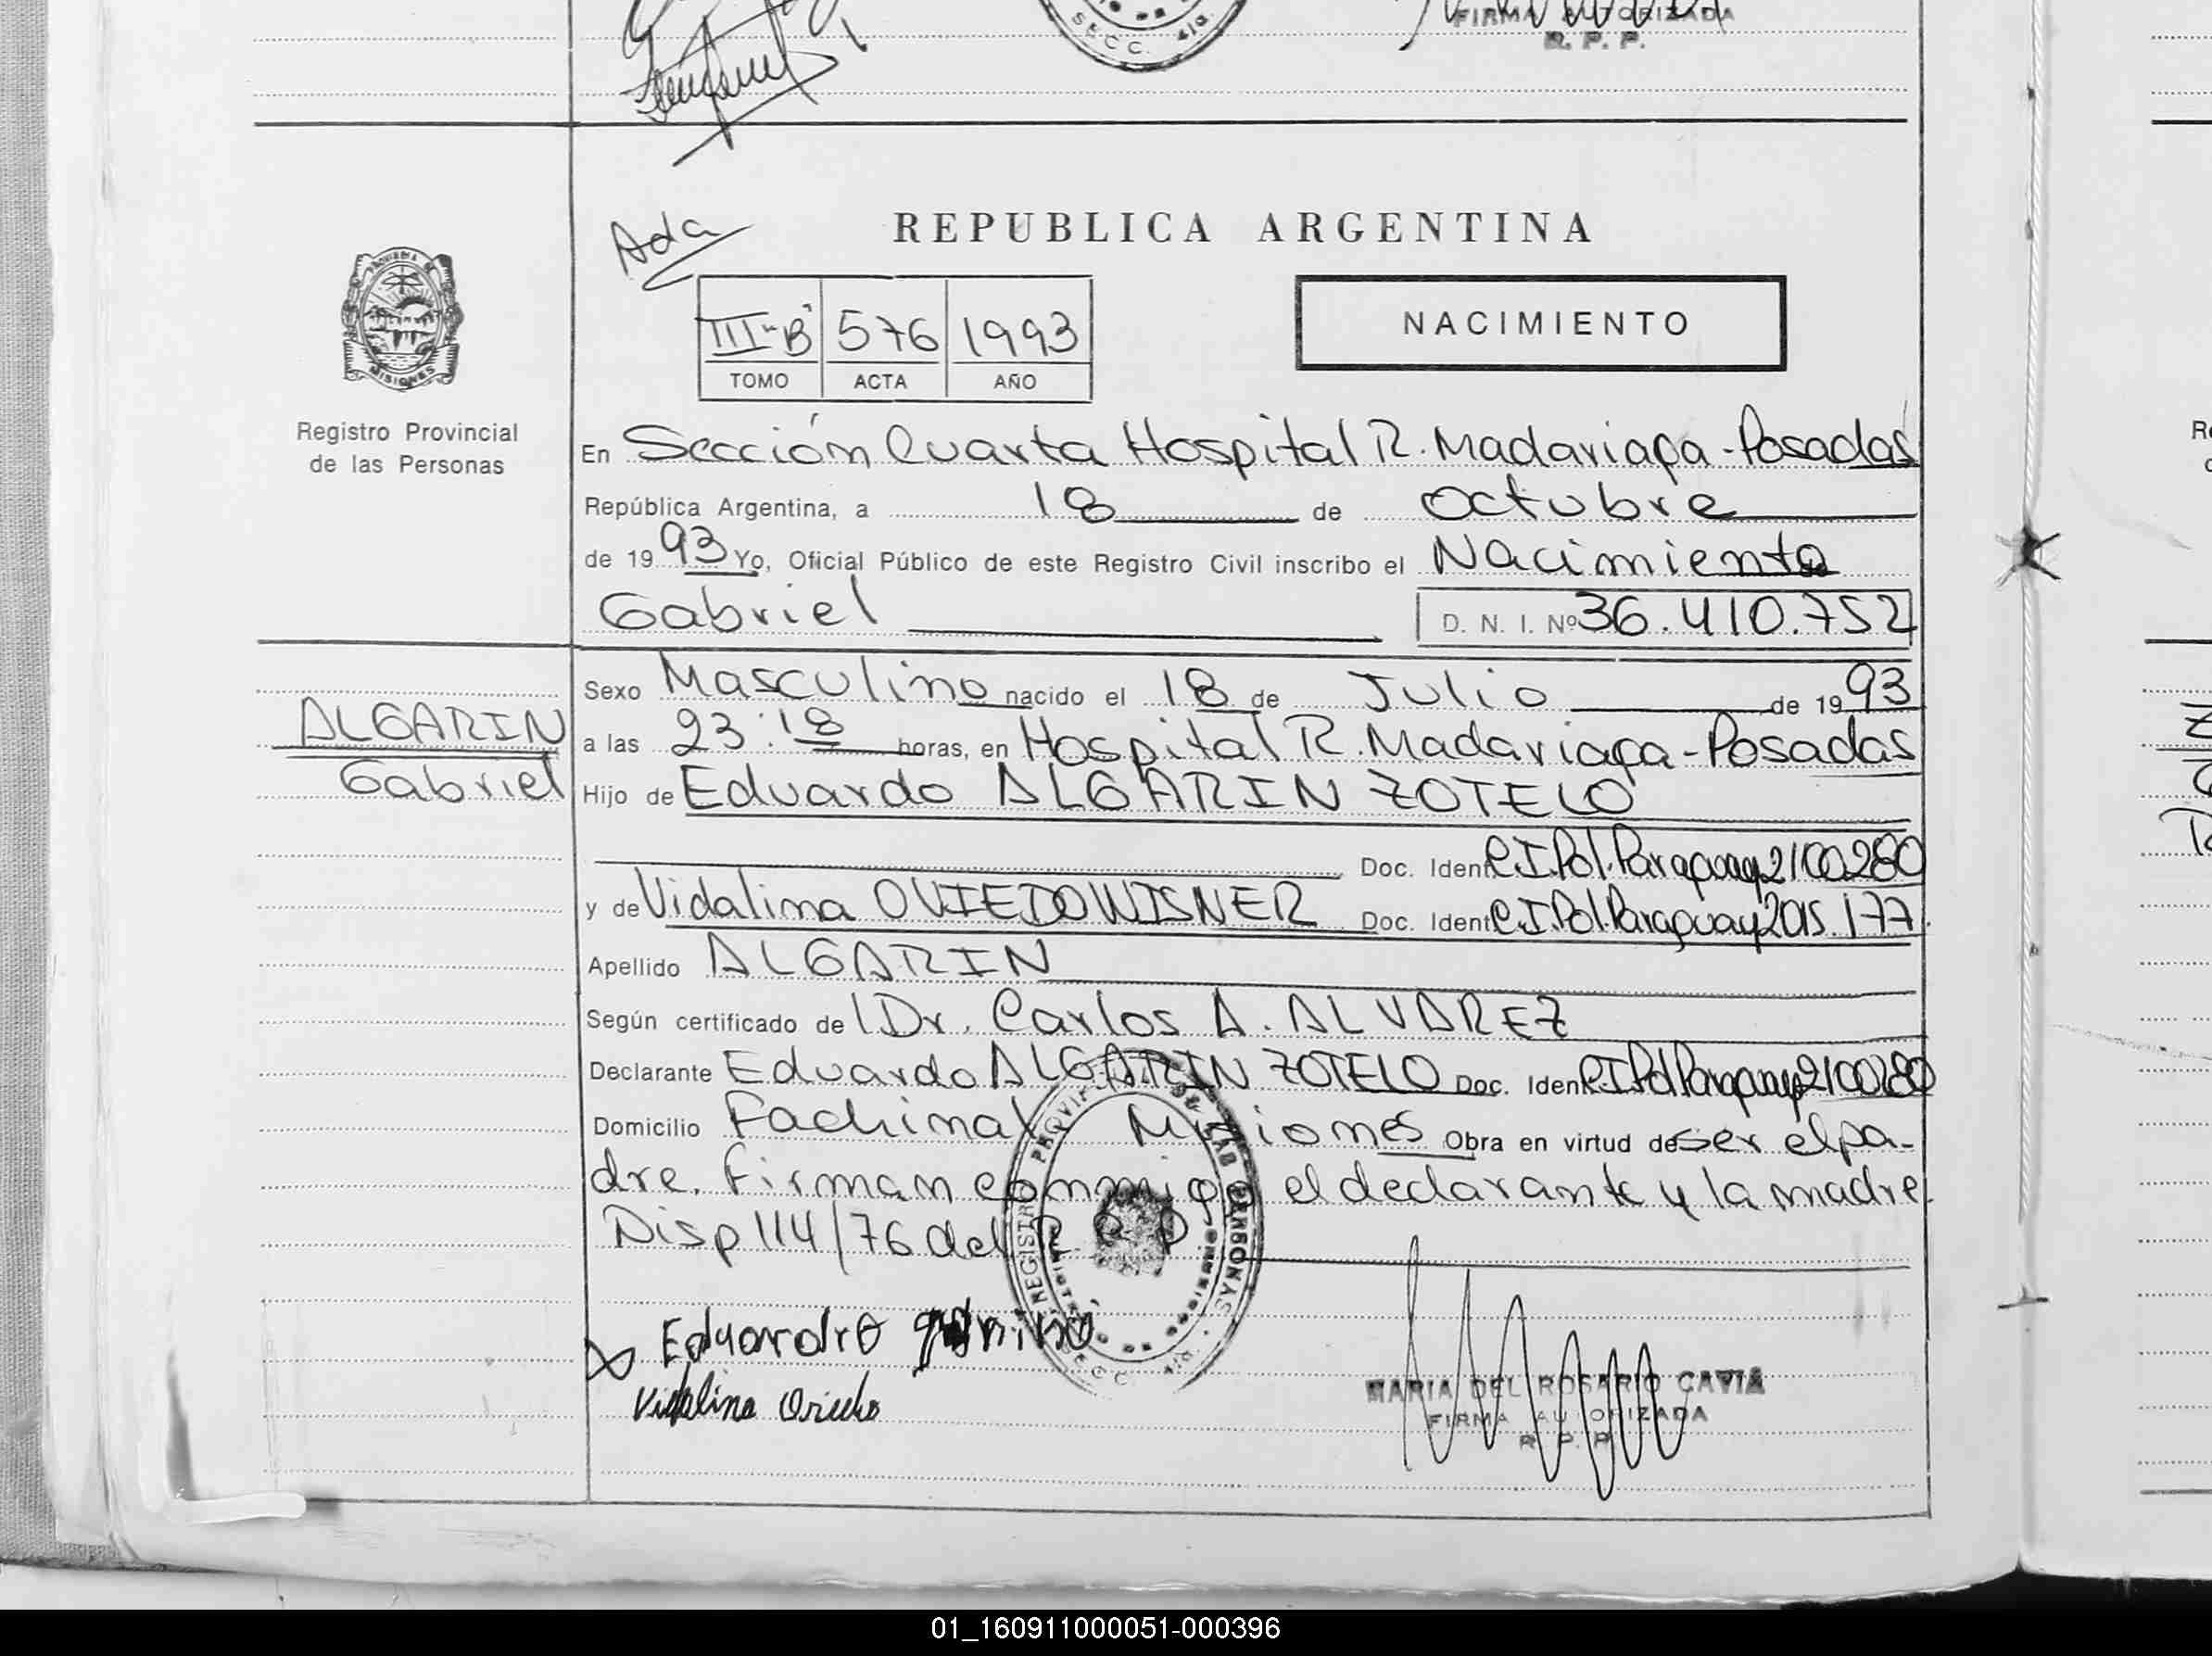 SECC. 4ta.
FIRMA AUTORIZADA
R. P. P.
Ada
REPUBLICA ARGENTINA
PROVINCIA DE
MISIONES
III-"B" 576 1993
TOMO ACTA AÑO
NACIMIENTO
Registro Provincial
de las Personas
En Sección Cuarta Hospital R. Madariaga-Posadas
República Argentina, a 18 de Octubre
de 1993 Yo, Oficial Público de este Registro Civil inscribo el Nacimiento de
Gabriel D. N. I. Nº 36.410.752
ALGARIN
Gabriel
Sexo Masculino nacido el 18 de Julio de 1993
a las 23:18 horas, en Hospital R. Madariaga-Posadas
Hijo de Eduardo ALGARIN ZOTELO
Doc. Ident. C.I.Pol.Paraguay 2100280
y de Vidalina OVIEDO WISNER Doc. Ident. C.I.Pol.Paraguay 2015.177.
Apellido ALGARIN
Según certificado de l Dr. Carlos A. ALVAREZ
Declarante Eduardo ALGARIN ZOTELO Doc. Ident. C.I.Pol.Paraguay 2100280
Domicilio Fachinal Misiones Obra en virtud de ser el pa-
dre. Firman conmigo el declarante y la madre.
Disp 114/76 del R. P. P.
REGISTRO PROVINCIAL DE LAS PERSONAS
SECC. 4ta.
Eduardo
Vidalina Oviedo
MARIA DEL ROSARIO CAVIA
FIRMA AUTORIZADA
R. P. P.
01_160911000051-000396